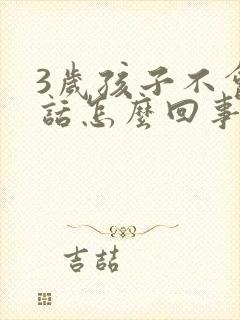 3歲孩子不會
話怎麼回事
吉喆